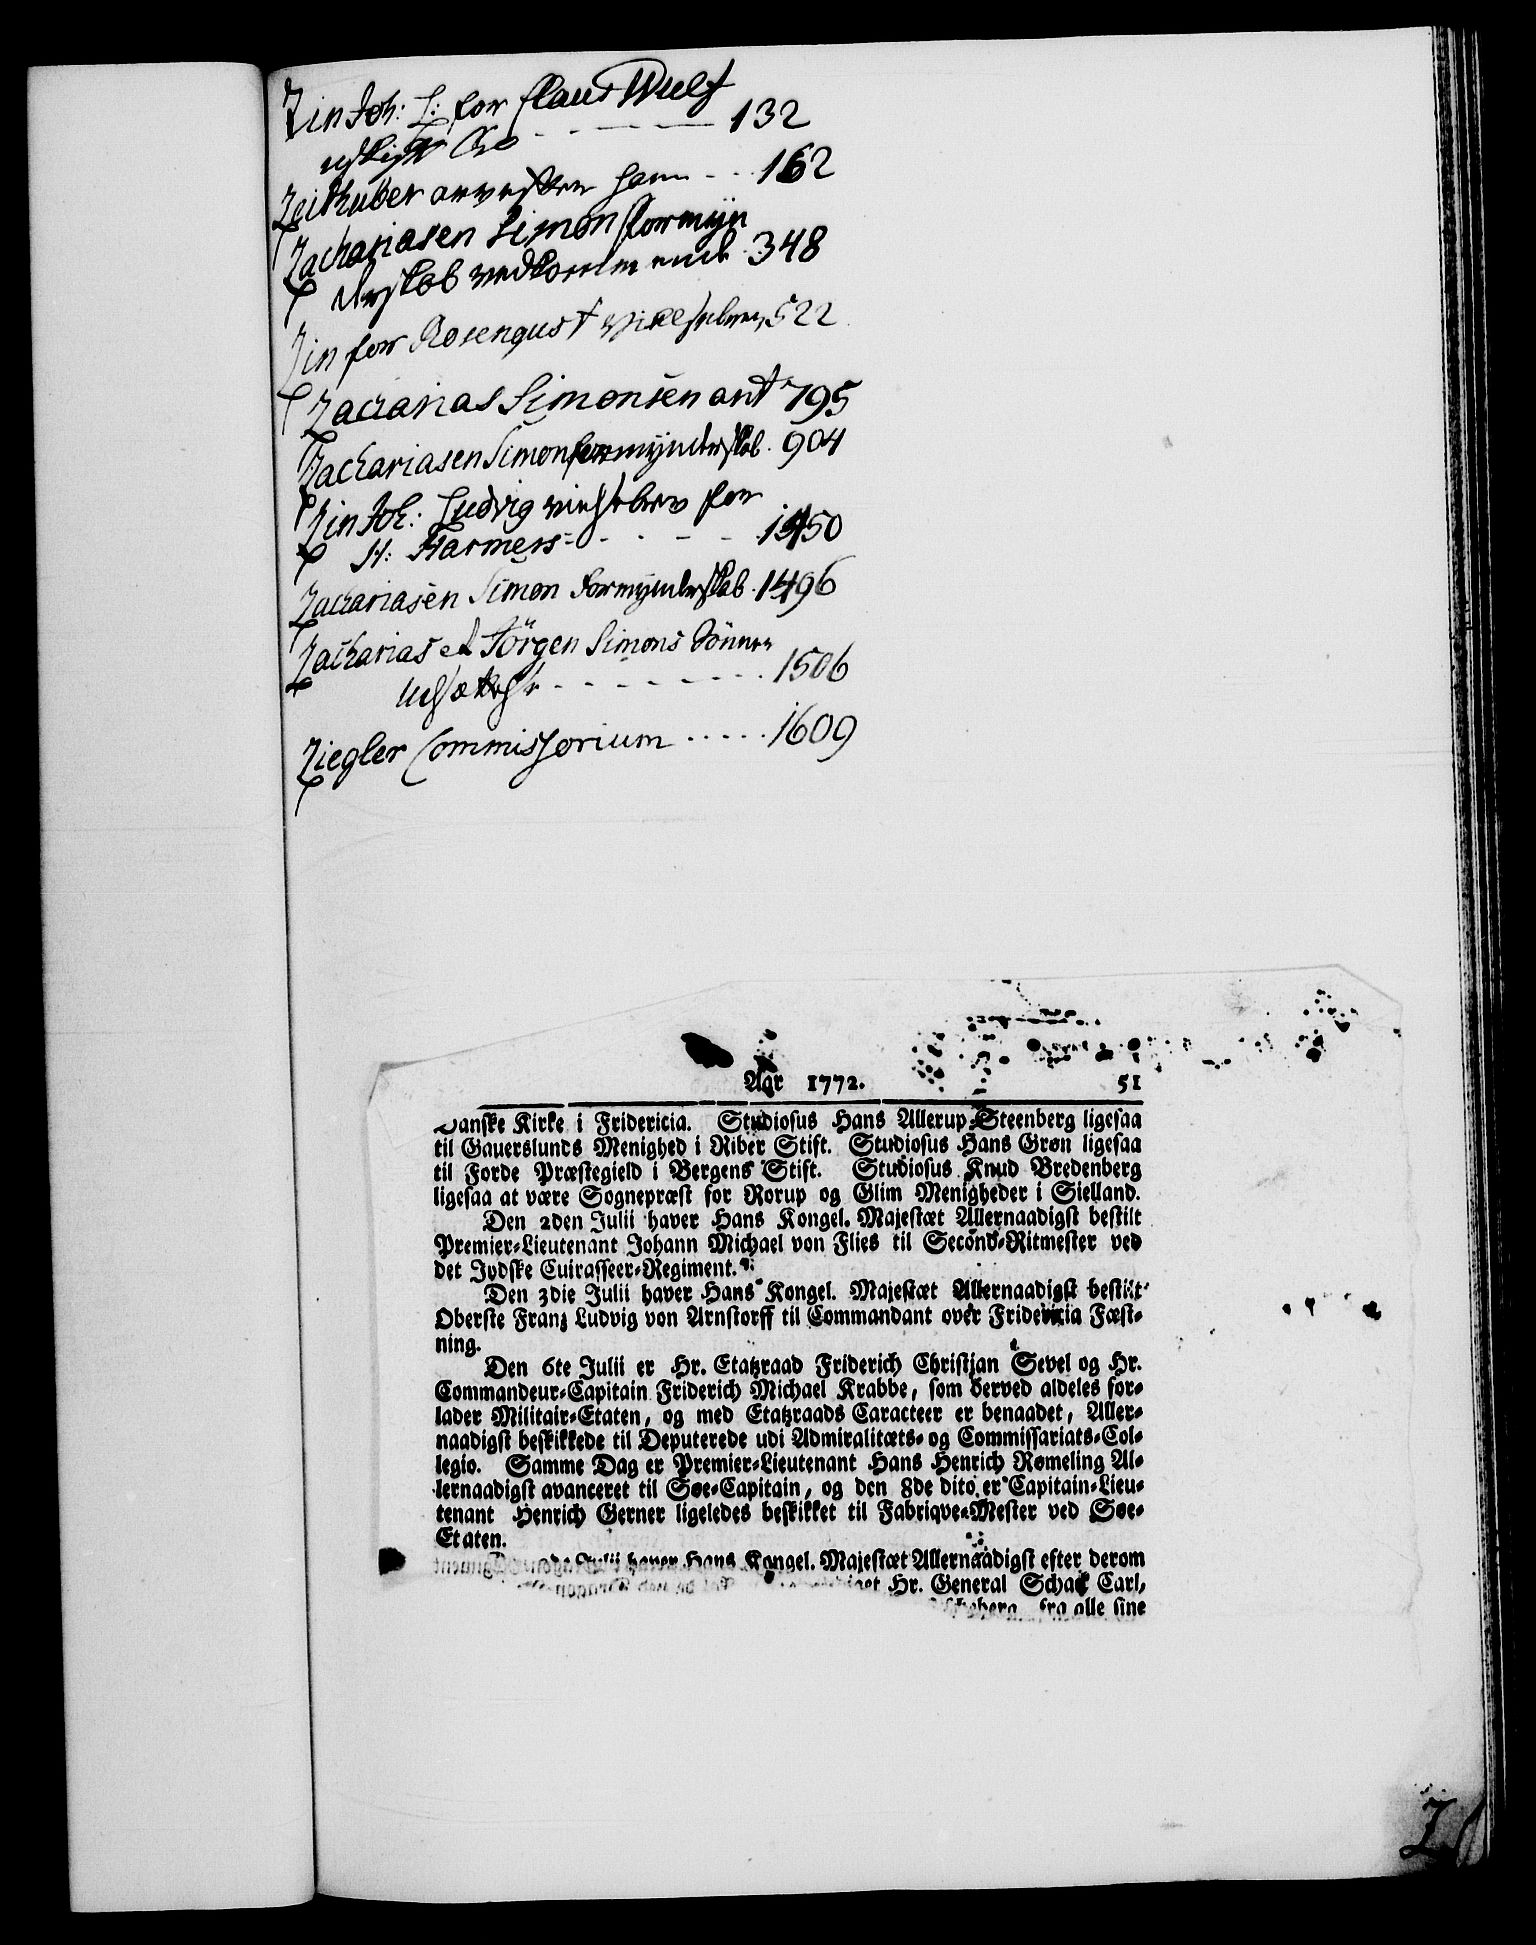 Zin Joh: L: for Claus Wulf
132
Zeithuber 162
Zachariasen Simon formyn
derskab vedkommende 348
Zin for Rosenqust 522
Zacharias Simonsen ant 795
Zachariasen Simon formynderskab. 904
Zin Joh: Ludvig for
H: Harmens - - - - 1450
Zachariasen Simon formynderskab. 1496
Zacharias et Jörgen Simons Sönner
1506
Ziegler Commissorium ..... 1609
Aar 1772. 51
Danske Kirke i Fridericia. Studiosus Hans Allerup Steenberg ligesaa
til Gauerslunds Menighed i Riber Stift. Studiosus Hans Grøn ligesaa
til Forde Præstegield i Bergens Stift. Studiosus Knud Bredenberg
ligesaa at være Sognepræst for Rorup og Glim Menigheder i Sielland.
Den 2den Julii haver Hans Kongel. Majestæt Allernaadigst bestilt
Premier-Lieutenant Johann Michael von Flies til Second-Ritmester ved
det Jydske Cuirasseer-Regiment.
Den 3die Julii haver Hans Kongel. Majestæt Allernaadigst bestilt
Oberste Franz Ludvig von Arnstorff til Commandant over Fridericia Fæst-
ning.
Den 6te Julii er Hr. Etatzraad Friderich Christian Sevel og Hr.
Commandeur-Capitain Friderich Michael Krabbe, som derved aldeles for-
lader Militair-Etaten, og med Etatzraads Caracteer er benaadet, Aller-
naadigst beskikkede til Deputerede udi Admiralitæts- og Commissariats-Col-
legio. Samme Dag er Premier-Lieutenant Hans Henrich Rømeling Al-
lernaadigst avanceret til Søe-Capitain, og den 8de dito er Capitain-Lieu-
tenant Henrich Gerner ligeledes beskikket til Fabriqve-Mester ved Søe-
Etaten.
Julii haver Hans Kongel. Majestæt Allernaadigst efter derom
Hr. General Schack Carl,
fra alle sine
Z